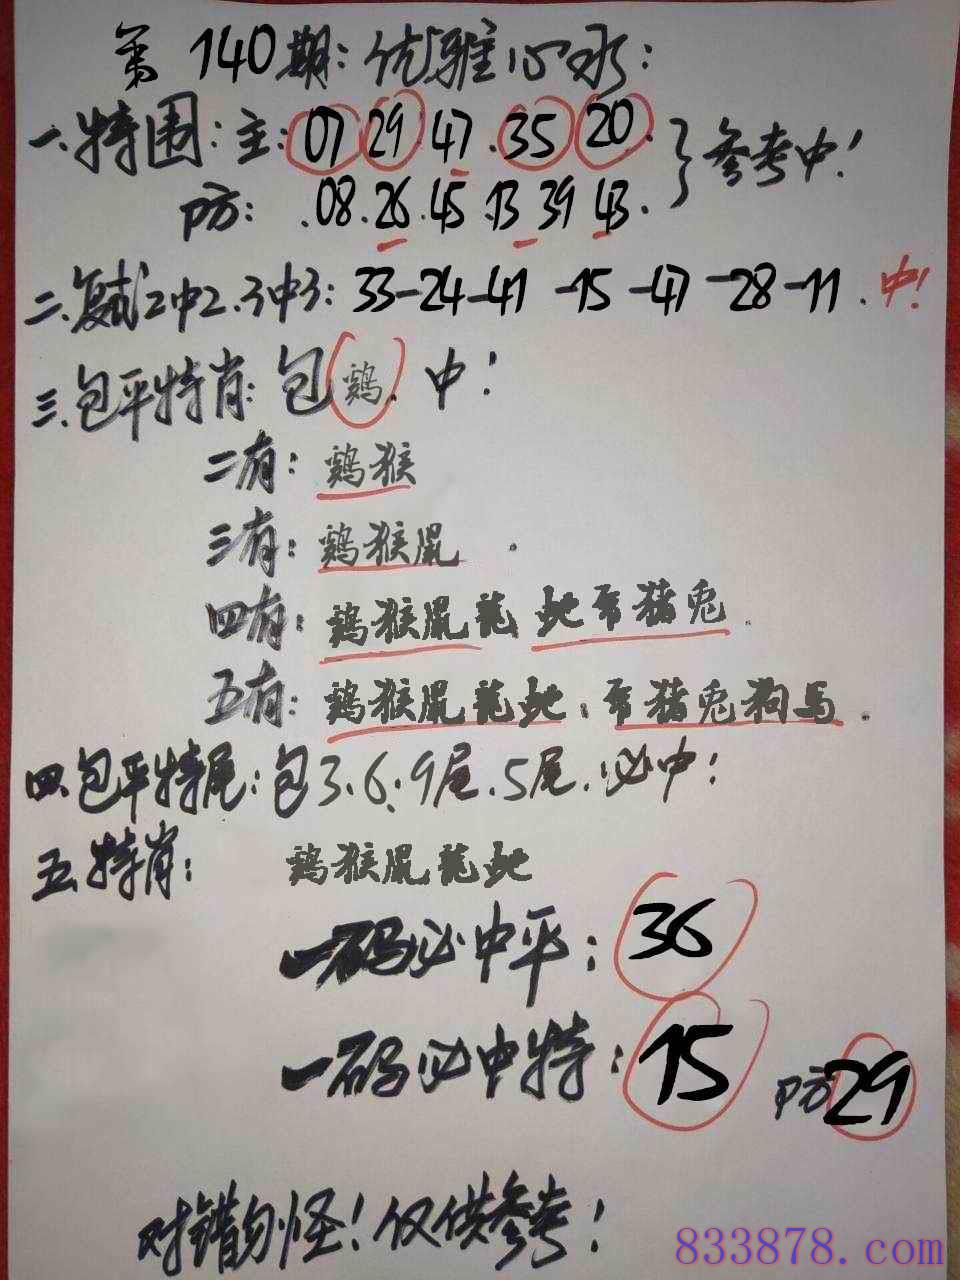 第140期：优雅心水：
一.特围：主：07 29.47.35 20. 参考中！
防：.08.26.45.13 39 43.
二.复式2中2.3中3：33-24-41-15-47-28-11.中！
三.包平特肖：包鷄.中！
二有：鷄猴
三有：鷄猴鼠.
四有：鷄猴鼠龍 蛇 猪兔.
五有：鷄猴鼠龍蛇. 猪兔狗马.
四.包平特尾：包3.6.9尾.5尾.必中！
五.特肖：鷄猴鼠龍蛇
一码必中平：36
一码必中特：15 防29
对错勿怪！仅供参考！
833878.com